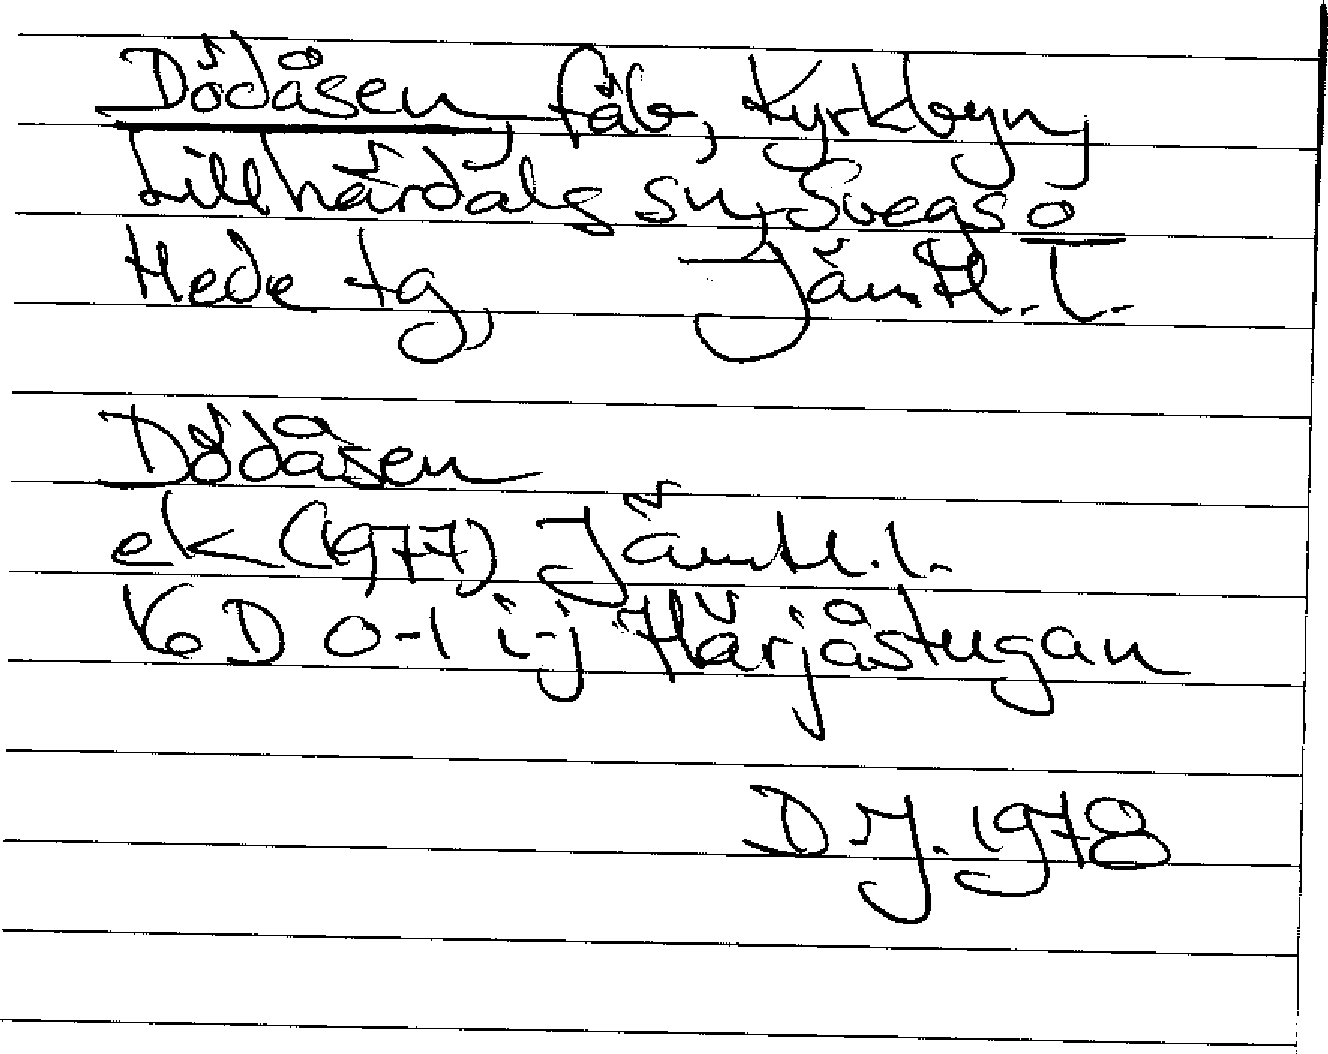 Dödåsen, fäb, Kyrkbyn,
Lillhärdals sn, Svegs o
Hede tg, Jämtl. l.
Dödåsen
ek (1977) Jämtl. l.
16 D 0-1 i-j Härjåstugan
D J. 1978